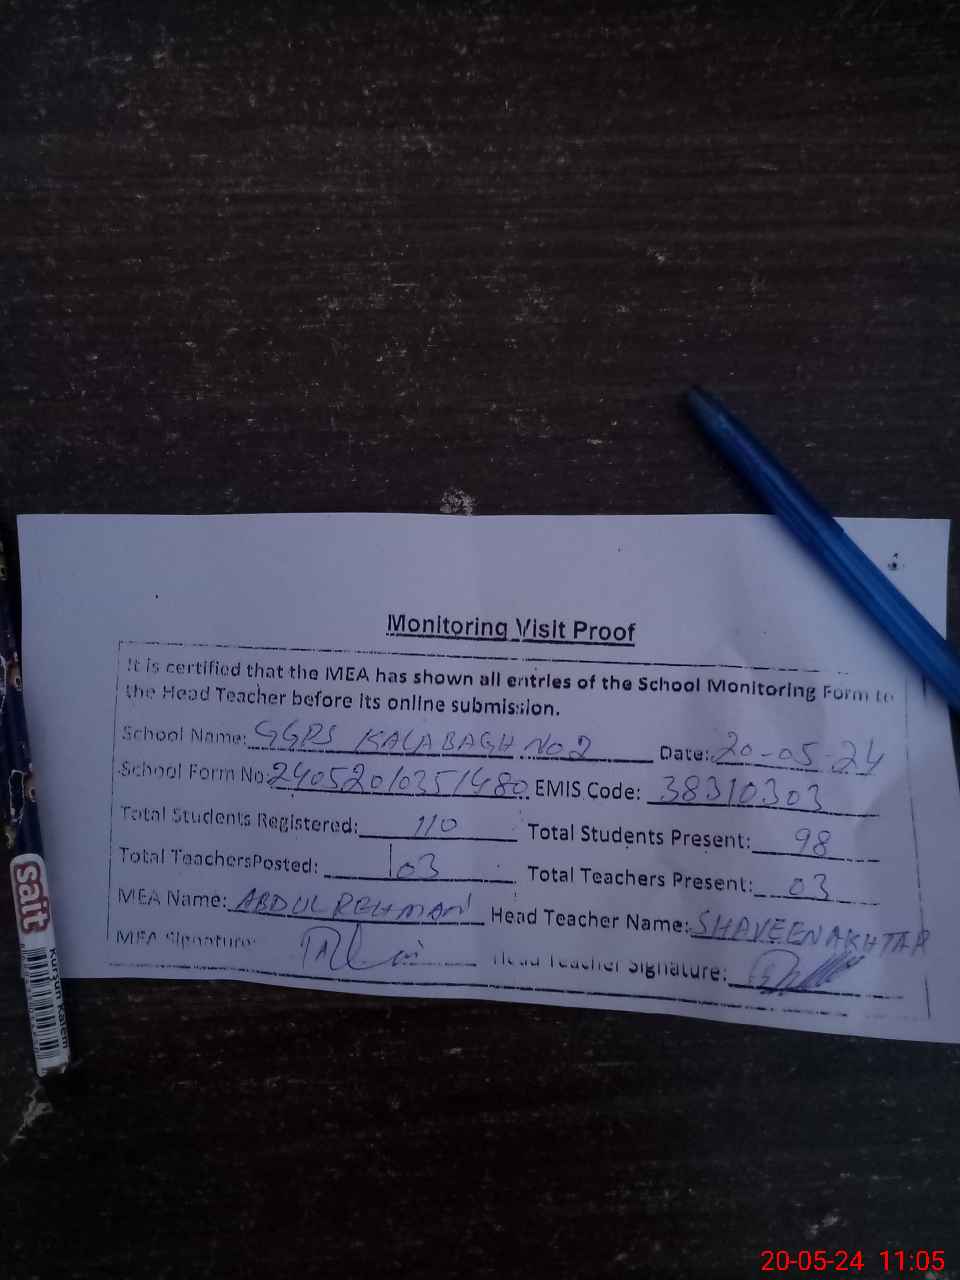 Monitoring Visit Proof
It is certified that the MEA has shown all entries of the School Monitoring Form to
the Head Teacher before its online submission.
School Name: GGPS KALABAGH NO 2 Date: 20-05-24
School Form No: 24052010351480 EMIS Code: 38310303
Total Students Registered: 110 Total Students Present: 98
Total TeachersPosted: 03 Total Teachers Present: 03
MEA Name: ABDUL REHMAN Head Teacher Name: SHAVEEN AKHTAR
MEA Signature: Head Teacher Signature:
sait
Kurşun Kalem
20-05-24 11:05